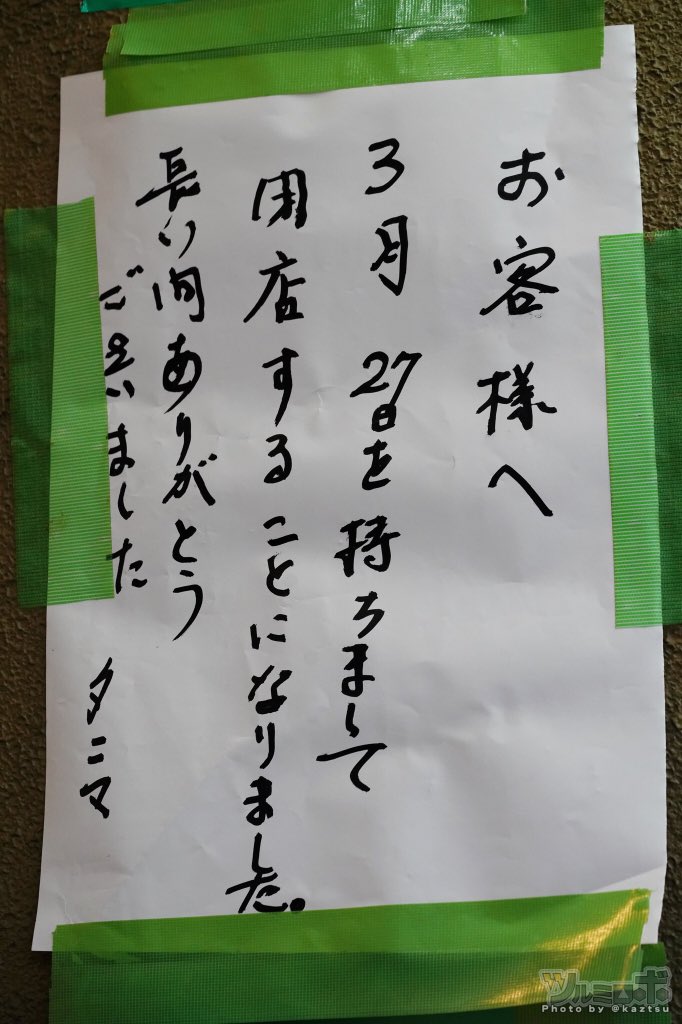 お客様へ
3月27日を持ちまして
閉店することになりました。
長い間ありがとう
ございました
タニマ
ツルミーボ
Photo by @kaztsu